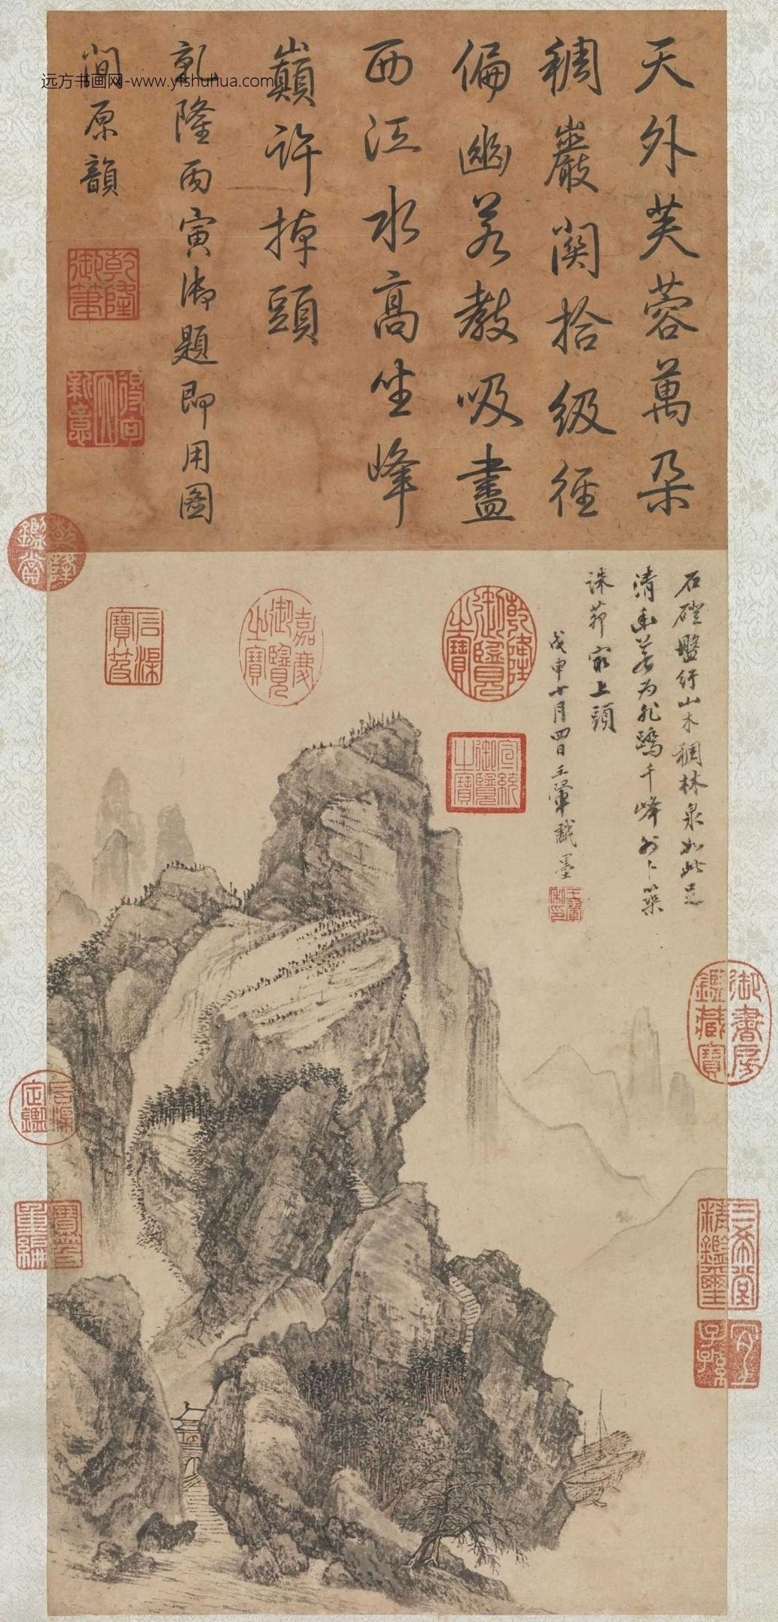 天外芙蓉萬朵
稠巖關拾級徑
偏幽若教吸盡
西江水高坐峰
巔許掉頭
乾隆丙寅御題即用圖
間原韻
远方书画网-www.yfshuhua.com
乾隆御筆
乾隆鑑賞
石磴盤紆山木稠林泉如此足
清幽若為飛蹻千峰外卜築
誅茆最上頭
戊申十月四日王肇戲墨
乾隆御覽之寶
嘉慶御覽之寶
石渠寶笈
宣統御覽之寶
御書房鑑藏寶
石渠定鑑
寶笈重編
三希堂精鑑璽
宜子孫